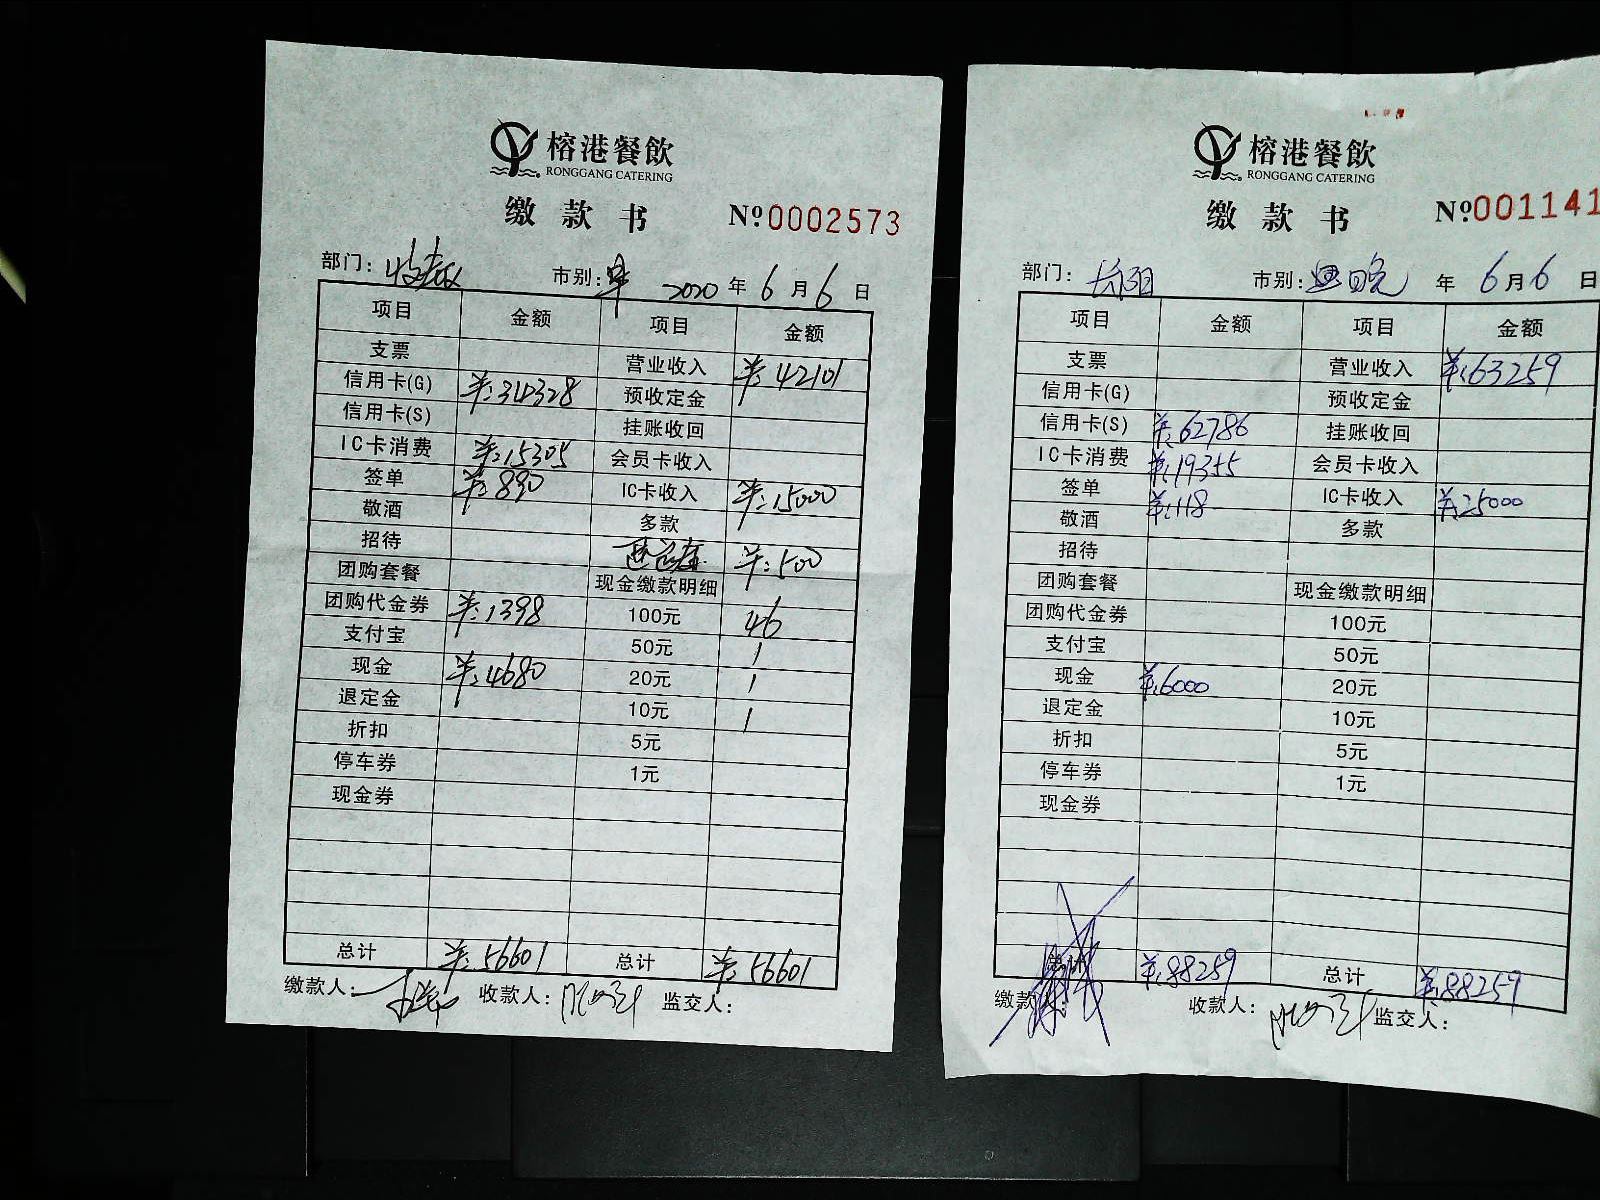 榕港餐飲
RONGGANG CATERING
缴款书
№0002573
部门: 市别:早 2020年6月6日
项目 金额 项目 金额
支票 营业收入 ¥:42101
信用卡(G) ¥:34328 预收定金
信用卡(S) 挂账收回
IC卡消费 ¥:15305 会员卡收入
签单 ¥:890 IC卡收入 ¥:15000
敬酒 多款
招待 ¥:500
团购套餐 现金缴款明细
团购代金券 ¥:1398 100元 46
支付宝 50元 1
现金 ¥:4680 20元 1
退定金 10元 1
折扣 5元
停车券 1元
现金券
总计 ¥:56601 总计 ¥:56601
缴款人: 收款人: 监交人:
榕港餐飲
RONGGANG CATERING
缴款书
№001141
部门: 市别: 年6月6日
项目 金额 项目 金额
支票 营业收入 ¥:63259
信用卡(G) 预收定金
信用卡(S) ¥:62786 挂账收回
IC卡消费 ¥:19355 会员卡收入
签单 ¥:118 IC卡收入 ¥:25000
敬酒 多款
招待
团购套餐 现金缴款明细
团购代金券 100元
支付宝 50元
现金 ¥:6000 20元
退定金 10元
折扣 5元
停车券 1元
现金券
总计 ¥:88259 总计 ¥:88259
缴款人: 收款人: 监交人: